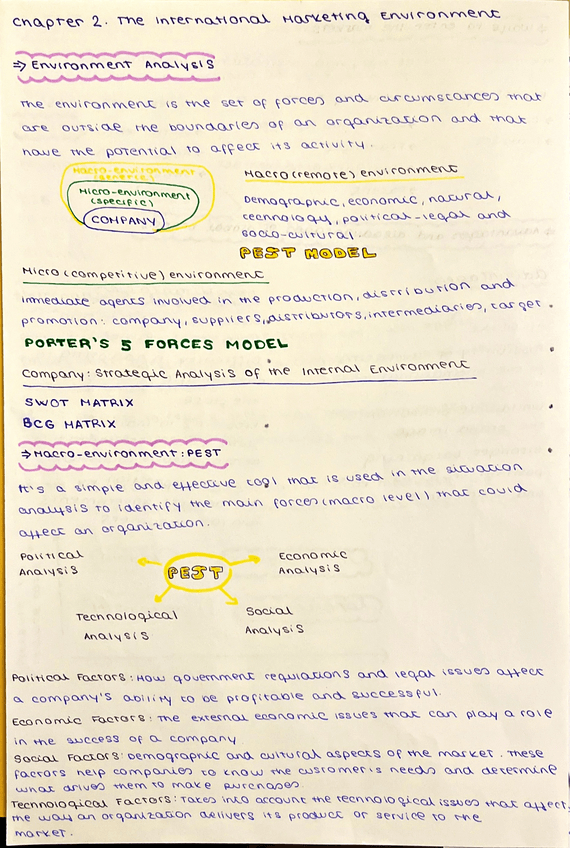 Chapter 2. The International Marketing Environment
⇒ Environment Analysis
The environment is the set of forces and circumstances that
are outside the boundaries of an organization and that
have the potential to affect its activity.
Macro-environment
(generic)
Micro-environment
(specific)
COMPANY
Macro (remote) environment
Demographic, economic, natural,
technology, political-legal and
socio-cultural
PEST MODEL
Micro (competitive) environment
immediate agents involved in the production, distribution and
promotion: company, suppliers, distributors, intermediaries, target.
PORTER'S 5 FORCES MODEL
Company: Strategic Analysis of the Internal Environment
SWOT MATRIX
BCG MATRIX
⇒ Macro-environment: PEST
It's a simple and effective tool that is used in the situation
analysis to identify the main forces (macro level) that could
affect an organization.
Political
Analysis
PEST
Economic
Analysis
Technological
Analysis
Social
Analysis
Political Factors: How government regulations and legal issues affect
a company's ability to be profitable and successful.
Economic Factors: The external economic issues that can play a role
in the success of a company.
Social Factors: Demographic and cultural aspects of the market. These
factors help companies to know the customer's needs and determine
what drives them to make purchases.
Technological Factors: Takes into account the technological issues that affect
the way an organization delivers its product or service to the
market.